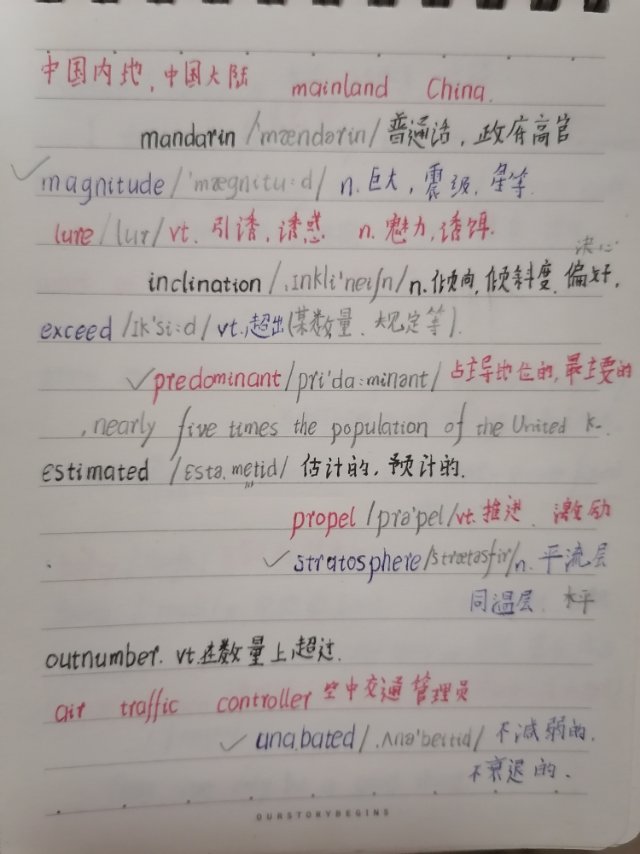 中国内地、中国大陆 mainland China.
mandarin /'mændərin/ 普通话，政府高官
magnitude /'mægnitu:d/ n. 巨大，震级，星等.
lure /lur/ vt. 引诱，诱惑 n. 魅力，诱饵.
决心
inclination /,ɪnkli'neiʃn/ n. 倾向，倾斜度，偏好.
exceed /ɪk'si:d/ vt. 超出(某数量、大规定等).
predominant /pri'da:minənt/ 占主导地位的，最主要的
, nearly five times the population of the United K-.
estimated /ɛsta,metid/ 估计的，预计的.
propel /prə'pel/ vt. 推进、激励
stratosphere /strætəsfir/ n. 平流层
同温层、水平
outnumber. vt. 在数量上超过.
air traffic controller 空中交通管理员
unabated /,ʌnə'beitid/ 不减弱的.
不衰退的.
OURSTORYBEGINS